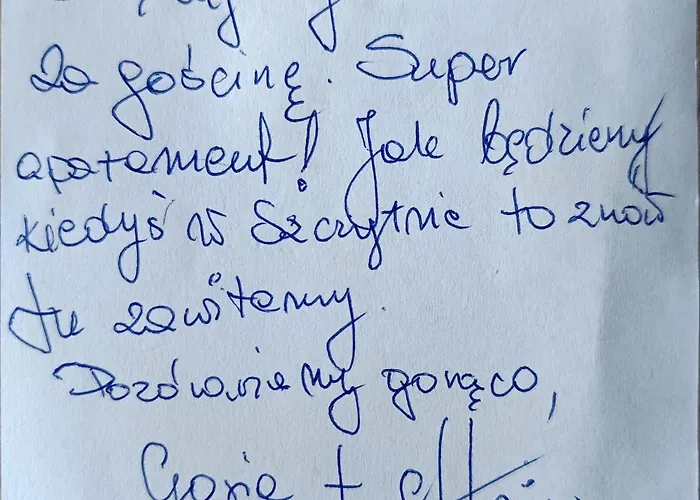 za gościnę. Super
apatament! Jak będziemy
kiedyś w Szczytnie to znów
tu zawitamy.
Pozdrawiamy gorąco,
Gosia +